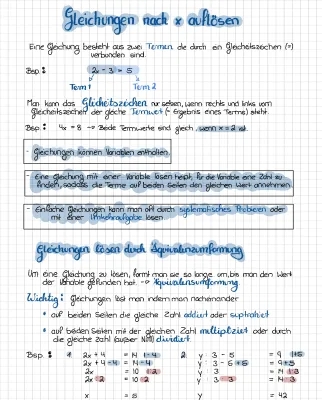 Gleichungen nach x auflösen
Eine Gleichung besteht aus zwei Termen die durch ein Gleichheitszeichen (=)
verbunden sind.
Bsp.: 2x - 3 = 5
Term 1 Term 2
Man kann das Gleichheitszeichen nur setzen, wenn rechts und links vom
Gleichheitszeichen der gleiche Termwert (= Ergebnis eines Terms) steht.
Bsp.: 4x = 8 → Beide Termwerte sind gleich, wenn x = 2 ist.
- Gleichungen können Variablen enthalten.
- Eine Gleichung mit einer Variable lösen heißt, für die Variable eine Zahl zu
finden, sodass die Terme auf beiden Seiten den gleichen Wert annehmen.
- Einfache Gleichungen kann man oft durch systematisches Probieren oder
mit einer Umkehraufgabe lösen
Gleichungen lösen durch Äquivalenzumformung
Um eine Gleichung zu lösen, formt man sie so lange um, bis man den Wert
der Variable gefunden hat. → Äquivalenzumformung
Wichtig: Gleichungen löst man indem man nacheinander
• auf beiden Seiten die gleiche Zahl addiert oder subtrahiert
• auf beiden Seiten mit der gleichen Zahl multipliziert oder durch
die gleiche Zahl (außer Null) dividiert.
Bsp.: 1. 2x + 4 = 14 |-4 2. y : 3 - 5 = 9 |+5
2x + 4 - 4 = 14 - 4
2x = 10 |:2 y : 3 = 14 |·3
x = 5 y = 42